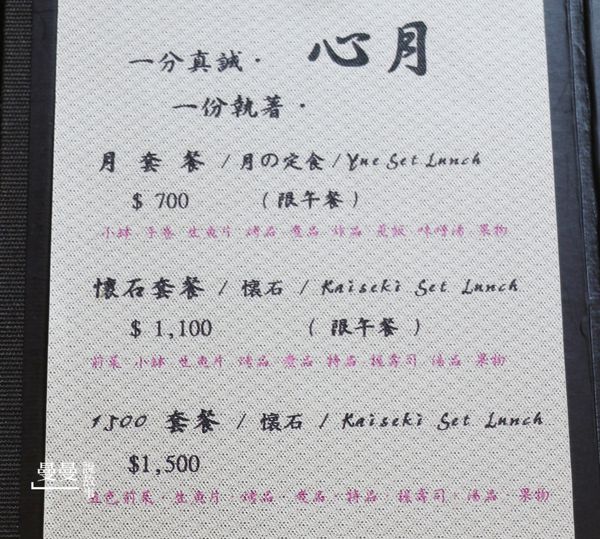 一分真誠・ 心月
一份執著・
月套餐 / 月の定食 / Yue Set Lunch
$ 700 （限午餐）
小缽 手卷 生魚片 烤品 煮品 炸品 蒸飯 味噌湯 果物
懷石套餐 / 懷石 / Kaiseki Set Lunch
$ 1,100 （限午餐）
前菜 小缽 生魚片 烤品 煮品 特品 握壽司 湯品 果物
1500 套餐 / 懷石 / Kaiseki Set Lunch
$1,500
五色前菜・生魚片・烤品・煮品・特品・握壽司・湯品・果物
曼曼